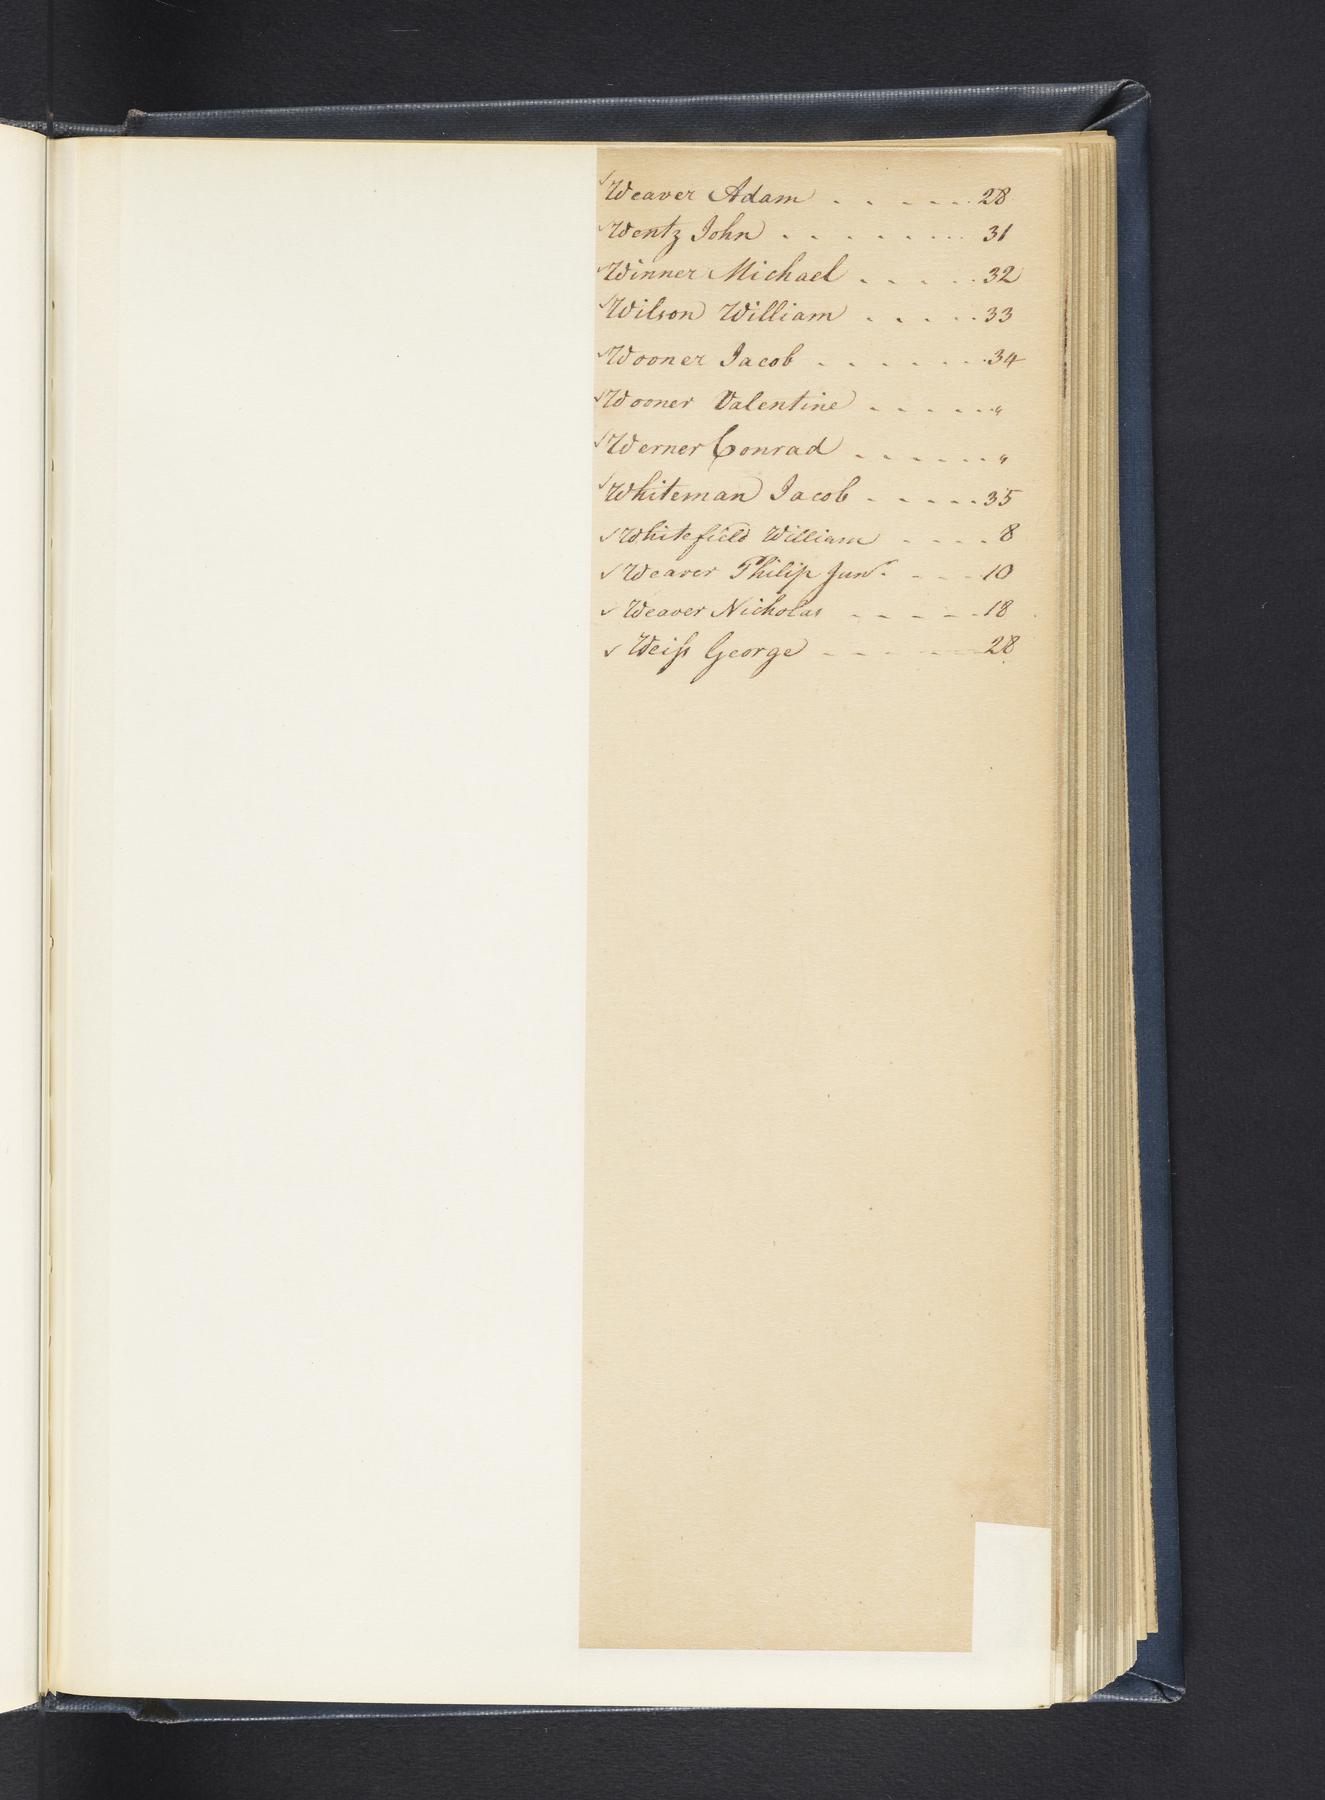 ✓Weaver Adam . . . . . . 28
✓Wentz John . . . . . . . . 31
✓Winner Michael . . . . . 32
✓Wilson William . . . . . 33
✓Wooner Jacob . . . . . . . 34
✓Wooner Valentine . . . . . . "
✓Werner Conrad . . . . . . . "
✓Whiteman Jacob . . . . . 35
✓Whitefield William . . . . 8
✓Weaver Philip Junr. - - - 10
✓Weaver Nicholas - - - - - 18
✓Weiſs George - - - - - - 28